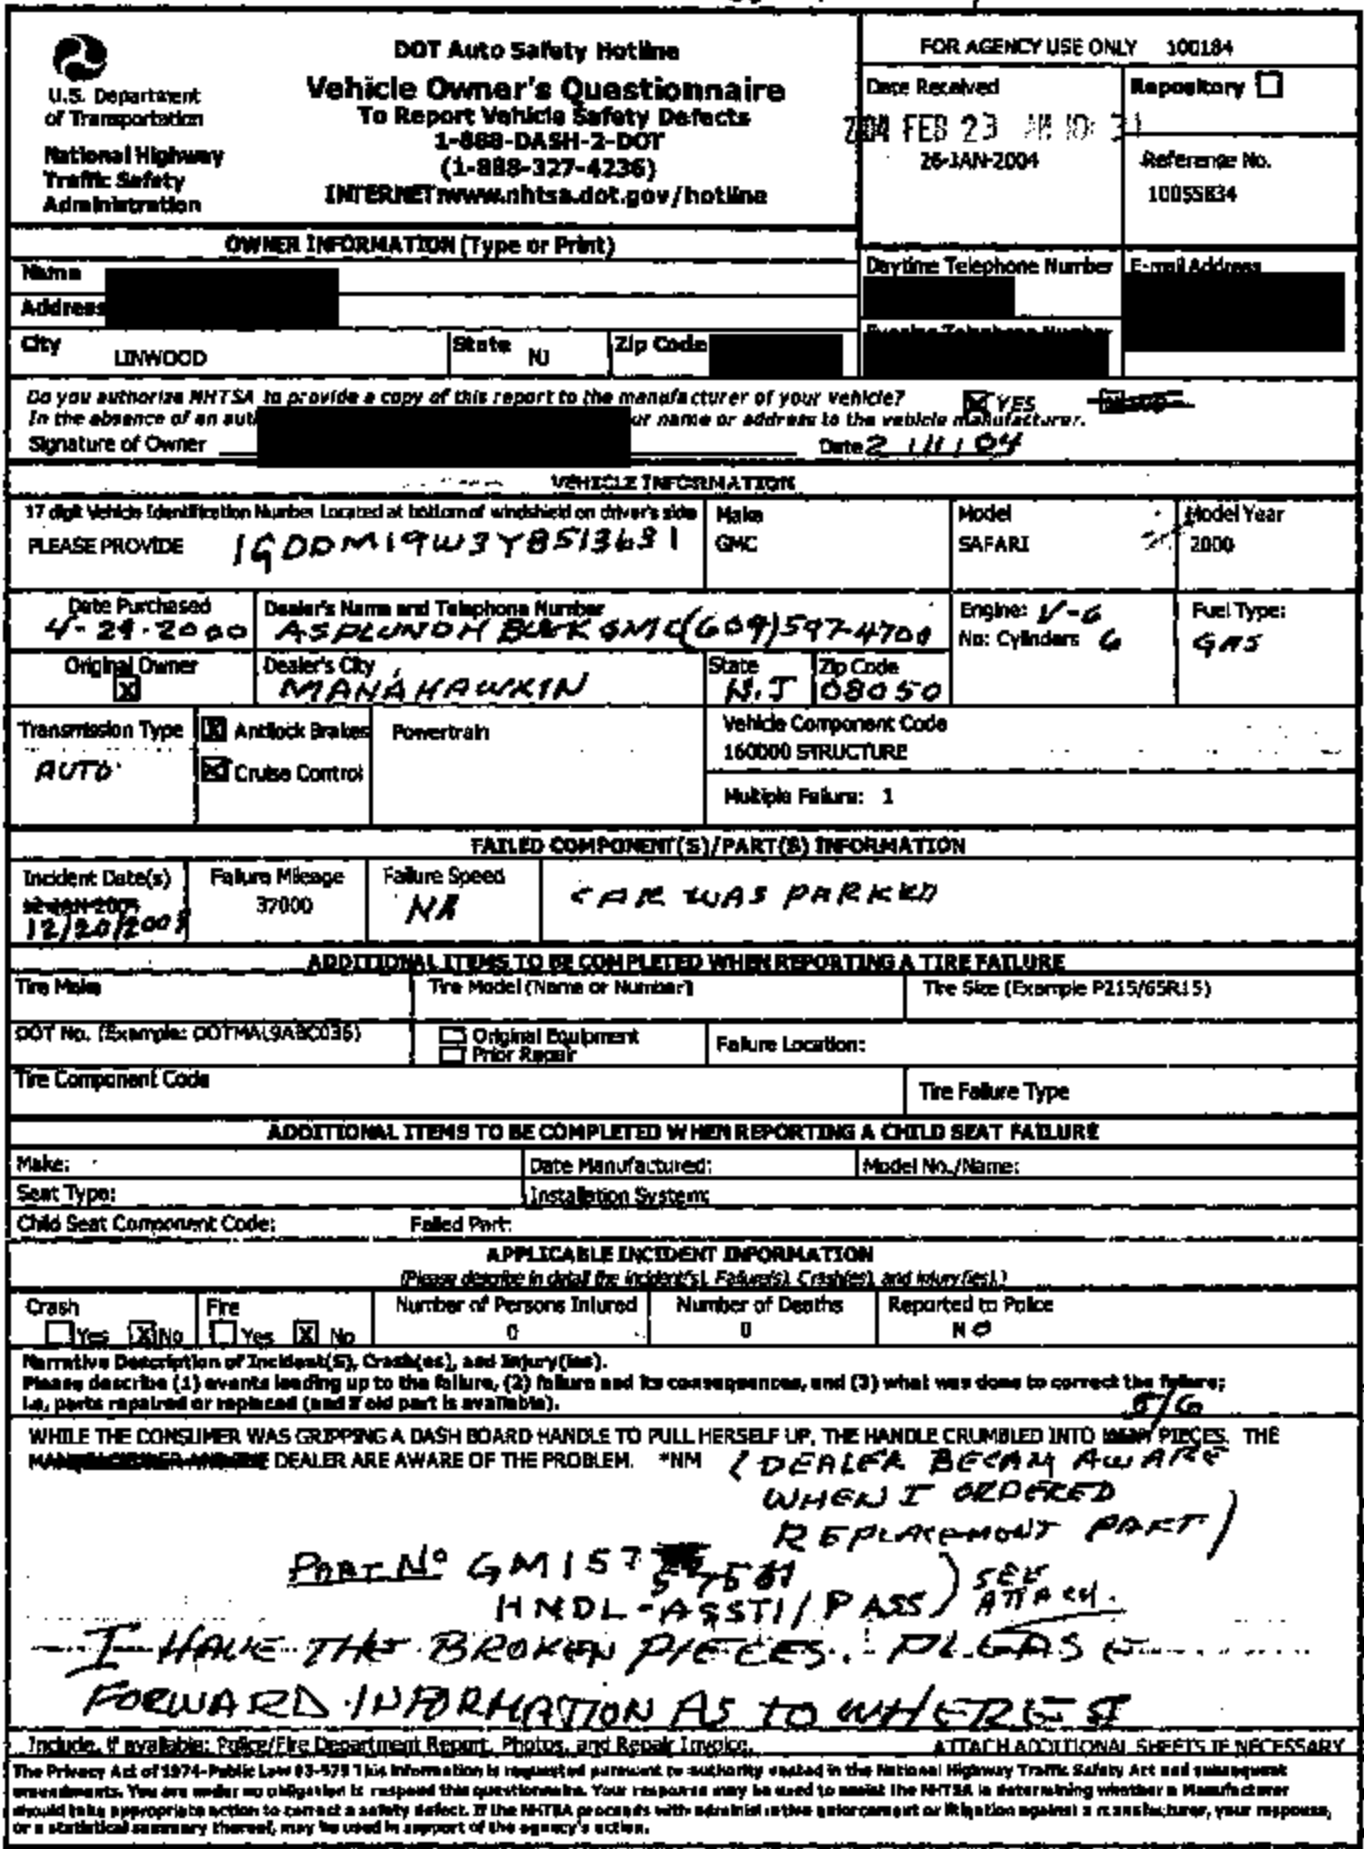 DOT Auto Safety Hotline
Vehicle Owner's Questionnaire
To Report Vehicle Safety Defects
1-888-DASH-2-DOT
(1-888-327-4236)
INTERNET:www.nhtsa.dot.gov/hotline
U.S. Department
of Transportation
National Highway
Traffic Safety
Administration
FOR AGENCY USE ONLY 100184
Date Received
FEB 23
26-JAN-2004
Repository
Reference No.
10055834
OWNER INFORMATION (Type or Print)
Name
Address
Daytime Telephone Number
E-mail Address
Evening Telephone Number
City LINWOOD State NJ Zip Code
Do you authorize NHTSA to provide a copy of this report to the manufacturer of your vehicle? YES
In the absence of an aut ur name or address to the vehicle manufacturer.
Signature of Owner Date 2 / 11 / 04
VEHICLE INFORMATION
17 digit Vehicle Identification Number Located at bottom of windshield on driver's side
PLEASE PROVIDE 1GDDM19W3YB513631
Make
GMC
Model
SAFARI
Model Year
2000
Date Purchased
4-29-2000
Dealer's Name and Telephone Number
ASPLUNDH BUICK GMC (609)597-4700
Engine: V-6
No: Cylinders 6
Fuel Type:
GAS
Original Owner
X
Dealer's City
MANAHAWKIN
State
N.J
Zip Code
08050
Transmission Type
AUTO
X Antilock Brakes
X Cruise Control
Powertrain
Vehicle Component Code
160000 STRUCTURE
Multiple Failure: 1
FAILED COMPONENT(S)/PART(S) INFORMATION
Incident Date(s)
12-JAN-2004
12/20/2003
Failure Mileage
37000
Failure Speed
NA
CAR WAS PARKED
ADDITIONAL ITEMS TO BE COMPLETED WHEN REPORTING A TIRE FAILURE
Tire Make
Tire Model (Name or Number)
Tire Size (Example P215/65R15)
DOT No. (Example: DOTMAL9ABC036)
Original Equipment
Prior Repair
Failure Location:
Tire Component Code
Tire Failure Type
ADDITIONAL ITEMS TO BE COMPLETED WHEN REPORTING A CHILD SEAT FAILURE
Make: Date Manufactured: Model No./Name:
Seat Type: Installation System:
Child Seat Component Code: Failed Part:
APPLICABLE INCIDENT INFORMATION
(Please describe in detail the incident(s), Failure(s), Crash(es), and injury(ies).)
Crash
Yes X No
Fire
Yes X No
Number of Persons Injured
0
Number of Deaths
0
Reported to Police
NO
Narrative Description of Incident(S), Crash(es), and Injury(ies).
Please describe (1) events leading up to the failure, (2) failure and its consequences, and (3) what was done to correct the failure;
i.e, parts repaired or replaced (and if old part is available).
5/6
WHILE THE CONSUMER WAS GRIPPING A DASH BOARD HANDLE TO PULL HERSELF UP, THE HANDLE CRUMBLED INTO MANY PIECES. THE
DEALER ARE AWARE OF THE PROBLEM. *NM (DEALER BECAM AWARE
WHEN I ORDERED
REPLACEMONT PART)
PART No GM157
HNDL-ASSTI/PASS) SEE
ATTACH.
I HAVE THE BROKEN PIECES. PLEASE
FORWARD INFORMATION AS TO WHERE I
Include, if available: Police/Fire Department Report, Photos, and Repair Invoice. ATTACH ADDITIONAL SHEETS IF NECESSARY
The Privacy Act of 1974-Public Law 93-579 This information is requested pursuant to authority vested in the National Highway Traffic Safety Act and subsequent
amendments. You are under no obligation to respond this questionnaire. Your response may be used to assist the NHTSA in determining whether a Manufacturer
should take appropriate action to correct a safety defect. If the NHTSA proceeds with administrative enforcement or litigation against a manufacturer, your response,
or a statistical summary thereof, may be used in support of the agency's action.